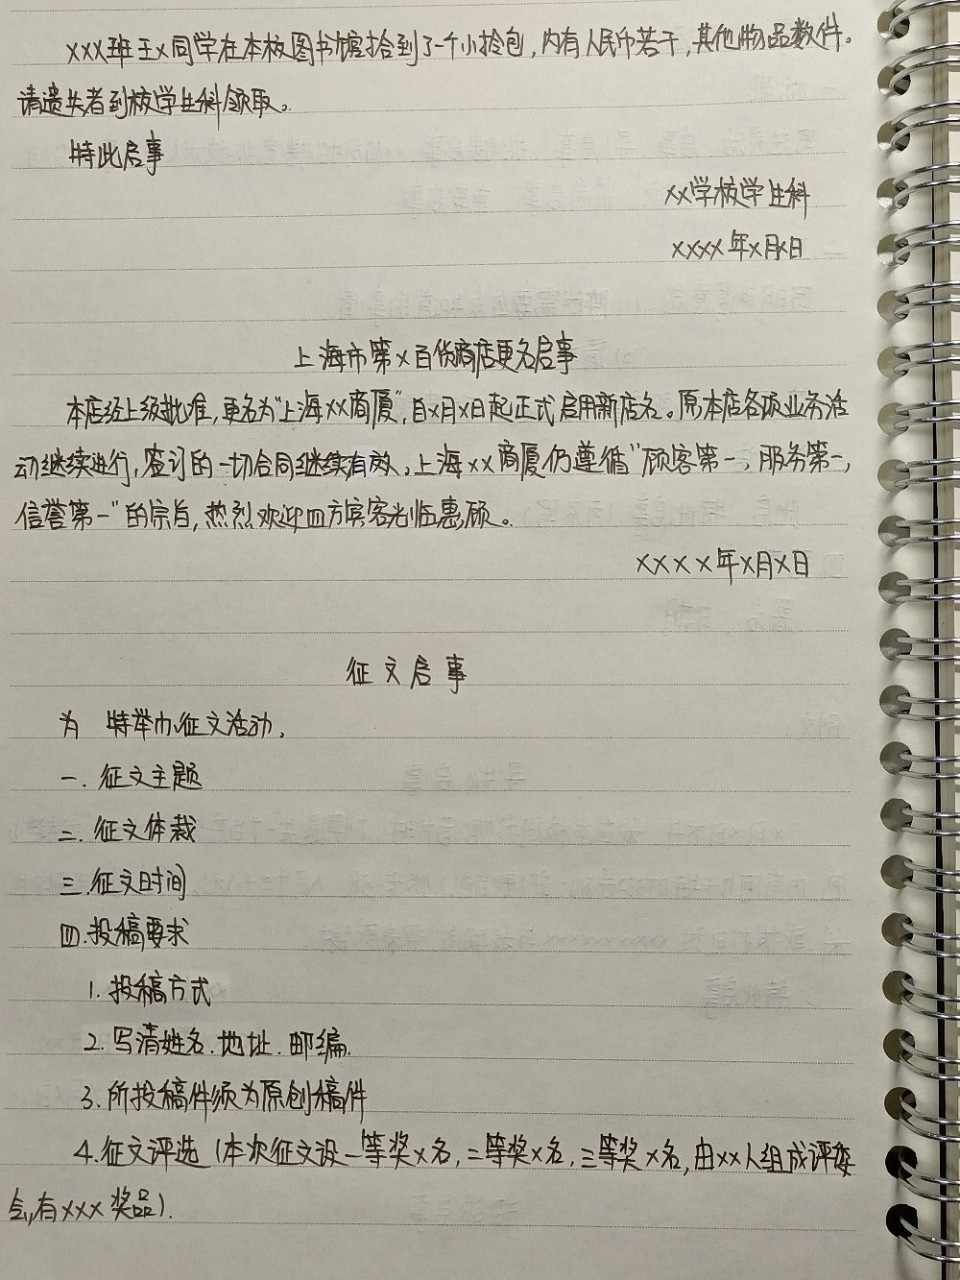 xxx班王x同学在本校图书馆拾到了一个小拎包,内有人民币若干,其他物品数件。
请遗失者到校学生科领取。
特此启事
xx学校学生科
xxxx年x月x日
上海市第x百货商店更名启事
本店经上级批准,更名为"上海xx商厦",自x月x日起正式启用新店名。原本店各项业务活
动继续进行,签订的一切合同继续有效。上海xx商厦仍遵循"顾客第一,服务第一,
信誉第一"的宗旨,热烈欢迎四方宾客光临惠顾。
xxxx年x月x日
征文启事
为 特举办征文活动,
一.征文主题
二.征文体裁
三.征文时间
四.投稿要求
1.投稿方式
2.写清姓名.地址.邮编.
3.所投稿件须为原创稿件
4.征文评选(本次征文设一等奖x名,二等奖x名,三等奖x名,由xx人组成评委
会,有xxx奖品).